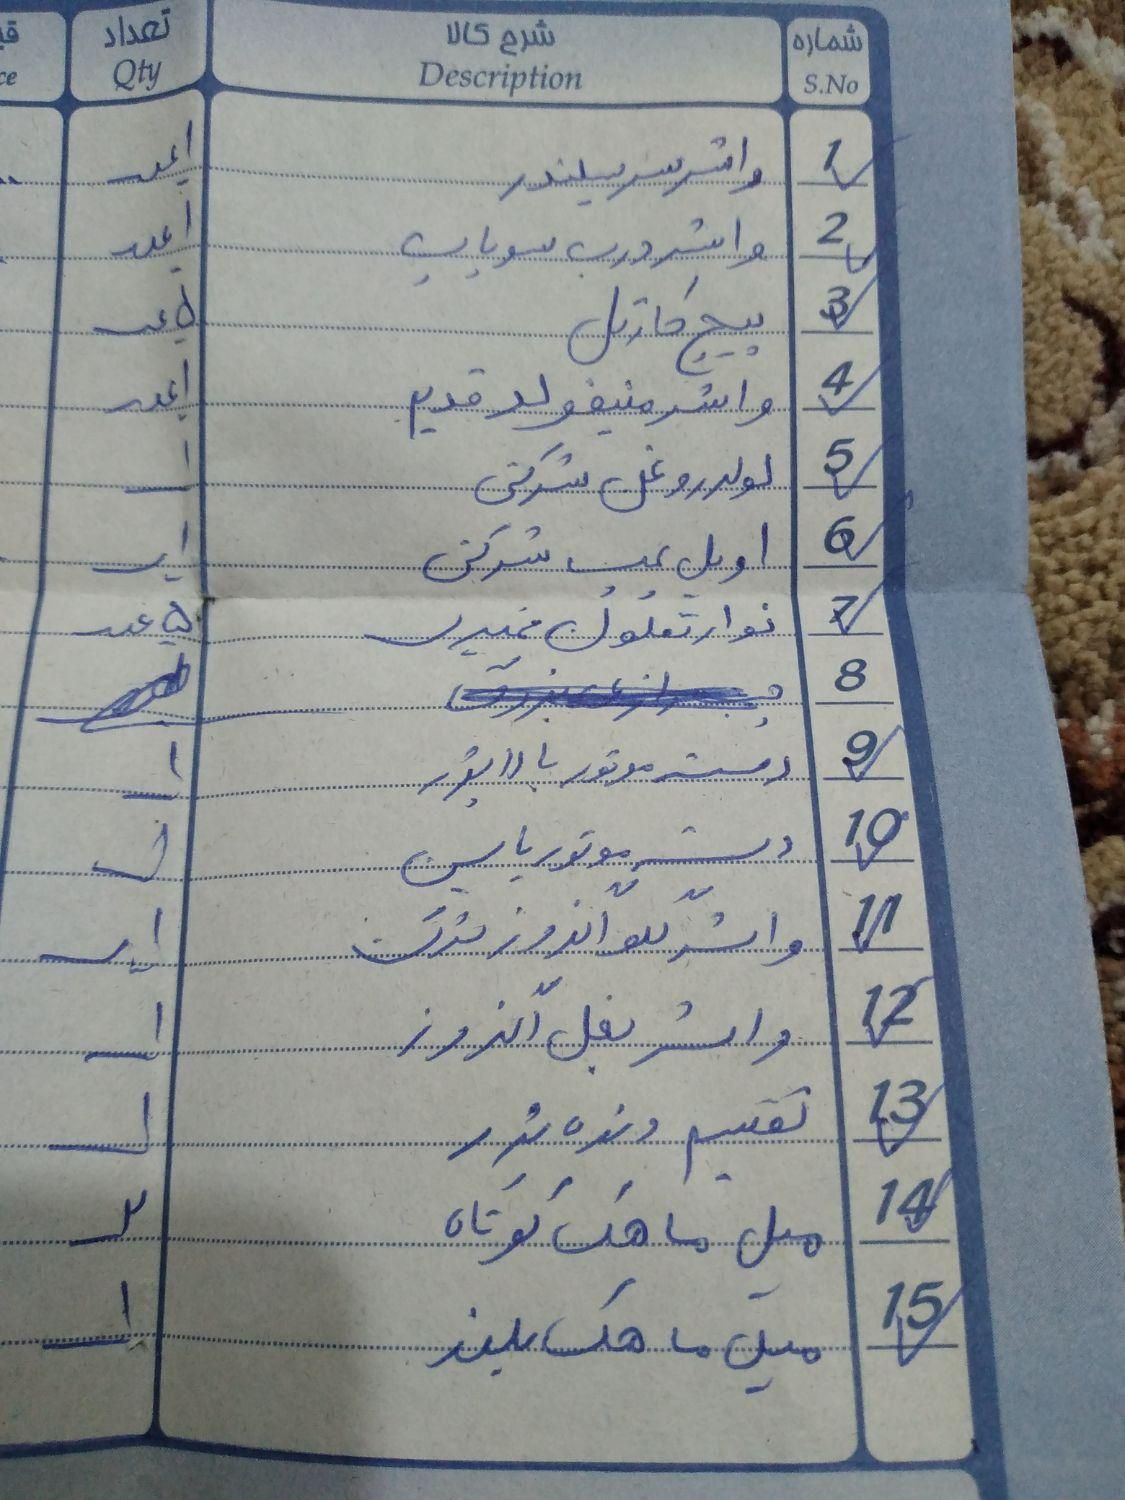 شماره شرح کالا تعداد
S.No Description Qty ce
1 واشر سر سیلندر ۱عدد
2 واشر درب سوپاپ ۱عدد
3 پیچ کارتل ۵ عدد
4 واشر منیفولد قدیم ۱عدد
5 لولر روغن شرکتی ۱
6 اویل پمپ شرکتی ۱
7 نوار تفلون خمیری ۵ عدد
8
9 دسته موتور بالا پژو ۱
10 دسته موتور پایین ۱
11 واشر گلو اگزوز شرکت ۱
12 واشر بغل اگزوز ۱
13 تقسیم دنده پژو ۱
14 میل ماهک کوتاه ۲
15 میل ماهک بلند ۱